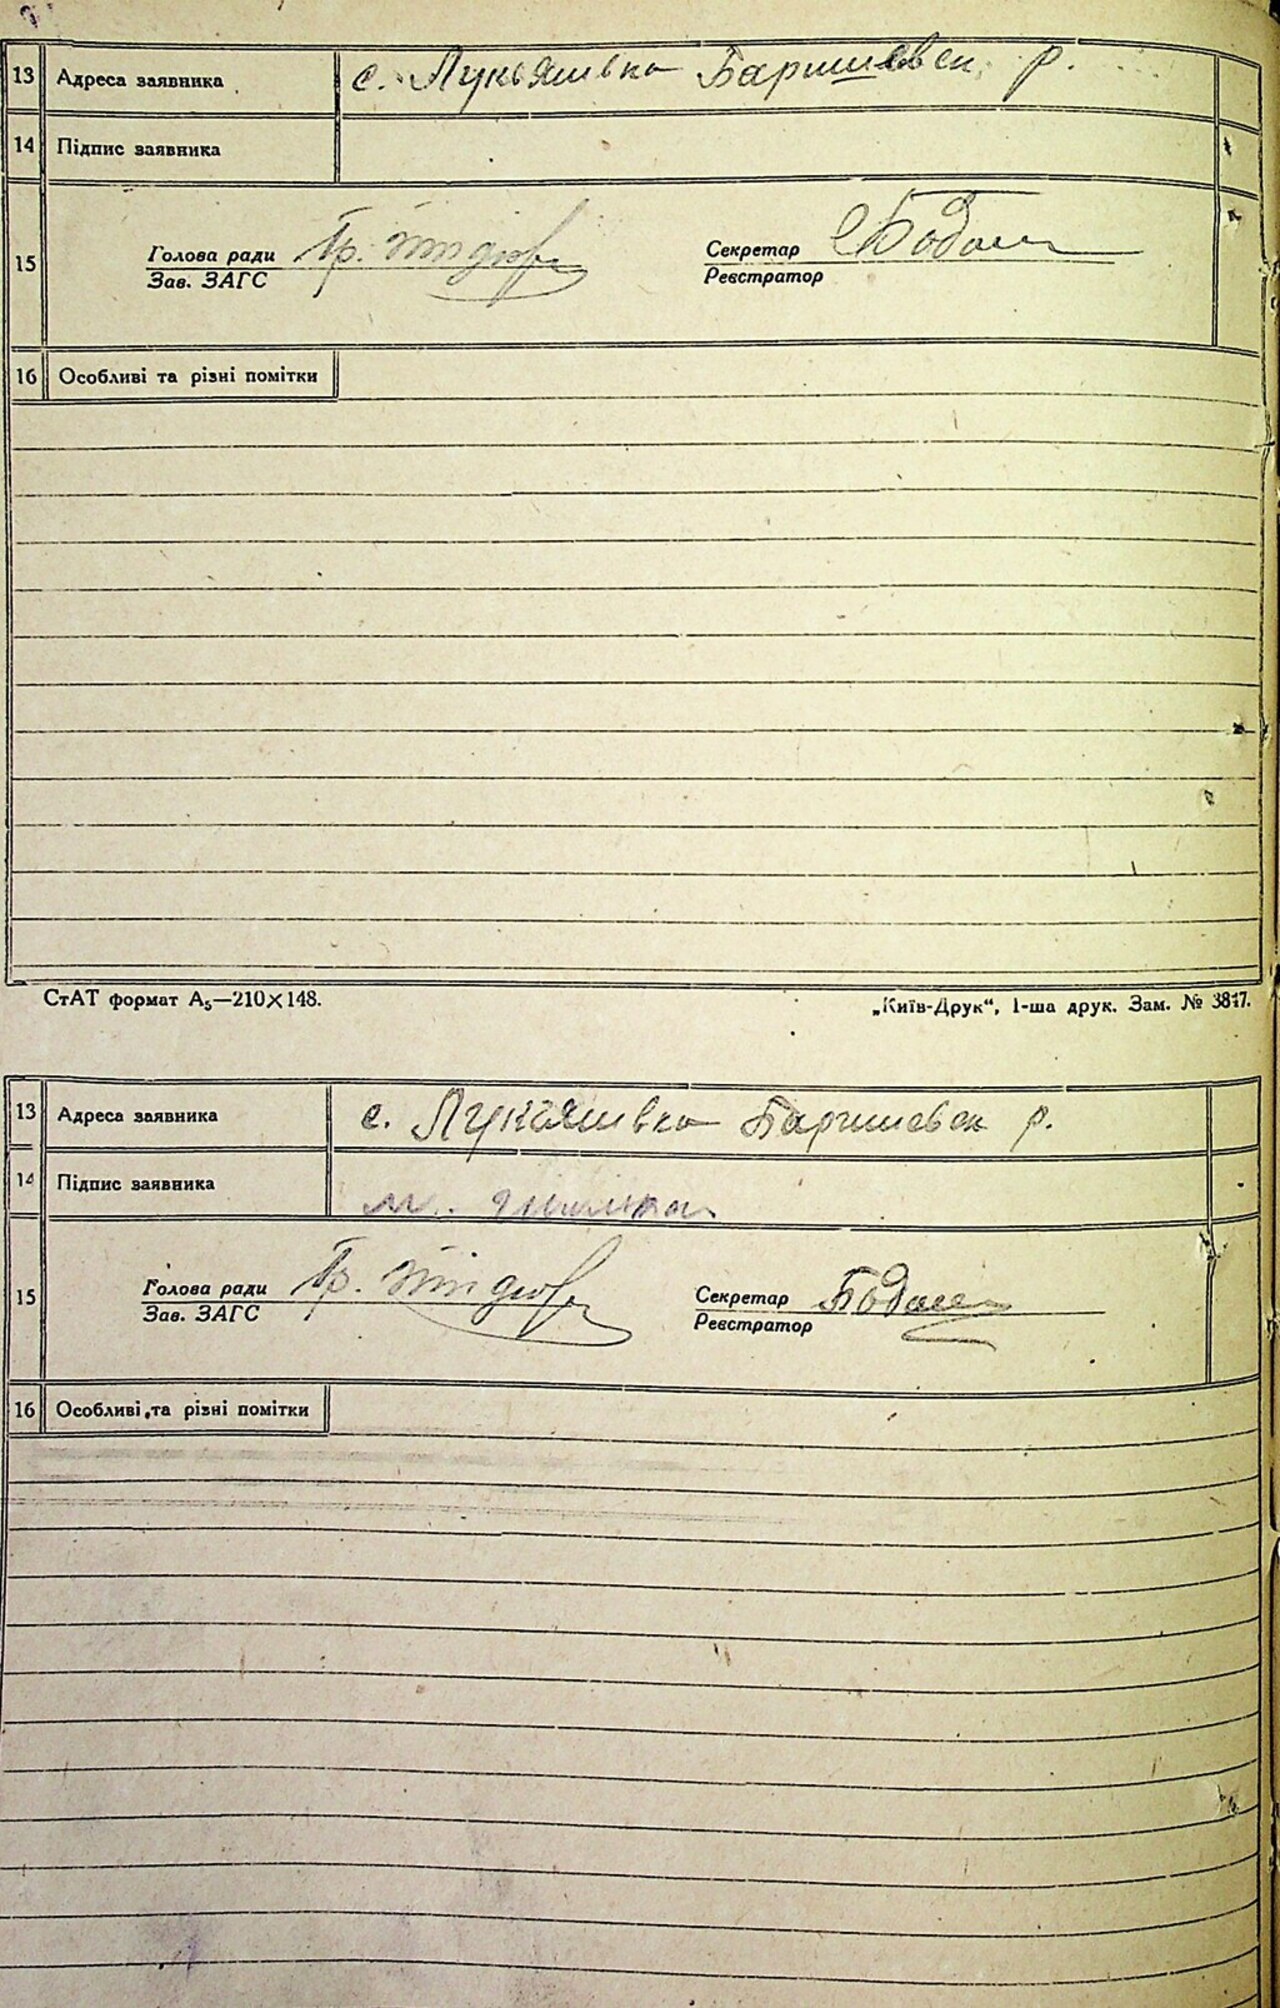 13 Адреса заявника с. Лукьяшівка Баришевск. р.
14 Підпис заявника
15 Голова ради Гр. Секретар Бодаш
Зав. ЗАГС Реєстратор
16 Особливі та різні помітки
СтАТ формат А₅—210×148. „Київ-Друк“, 1-ша друк. Зам. № 3817.
13 Адреса заявника с. Лукяшівка Баришевск р.
14 Підпис заявника м.
15 Голова ради Гр. Секретар
Зав. ЗАГС Реєстратор
16 Особливі та різні помітки